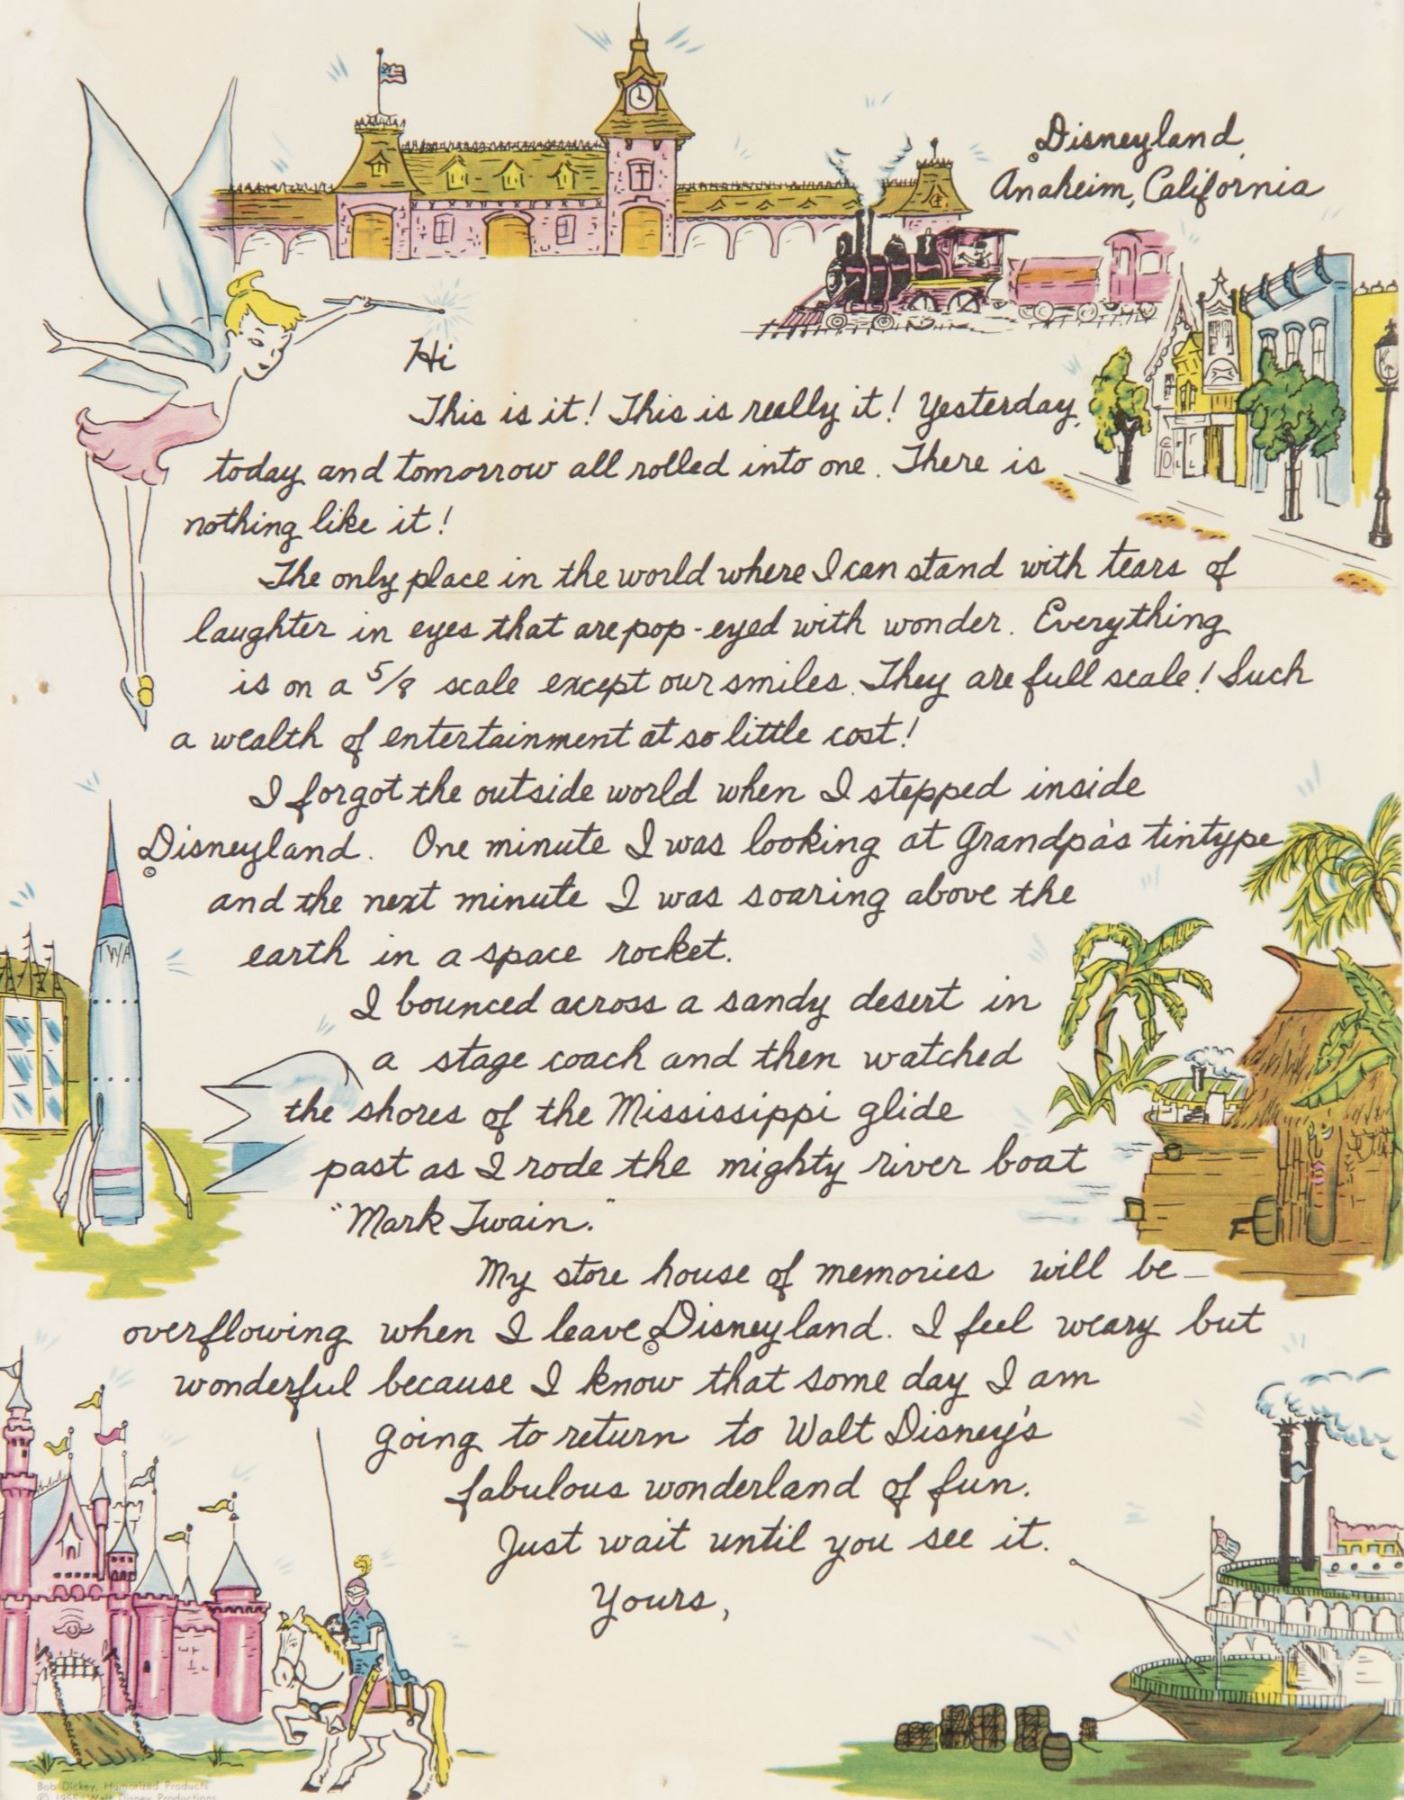 Disneyland,
©
Anaheim, California
Hi
This is it! This is really it! Yesterday,
today and tomorrow all rolled into one. There is
nothing like it!
The only place in the world where I can stand with tears of
laughter in eyes that are pop-eyed with wonder. Everything
is on a 5/8 scale except our smiles. They are full scale! Such
a wealth of entertainment at so little cost!
I forgot the outside world when I stepped inside
Disneyland. One minute I was looking at Grandpa's tintype
©
and the next minute I was soaring above the
earth in a space rocket.
TWA
I bounced across a sandy desert in
a stage coach and then watched
the shores of the Mississippi glide
past as I rode the mighty river boat
"Mark Twain."
My store house of memories will be-
overflowing when I leave Disneyland. I feel weary but
©
wonderful because I know that some day I am
going to return to Walt Disney's
fabulous wonderland of fun.
Just wait until you see it.
Yours,
Bob Dickey, Humorized Products
© 1955 Walt Disney Productions